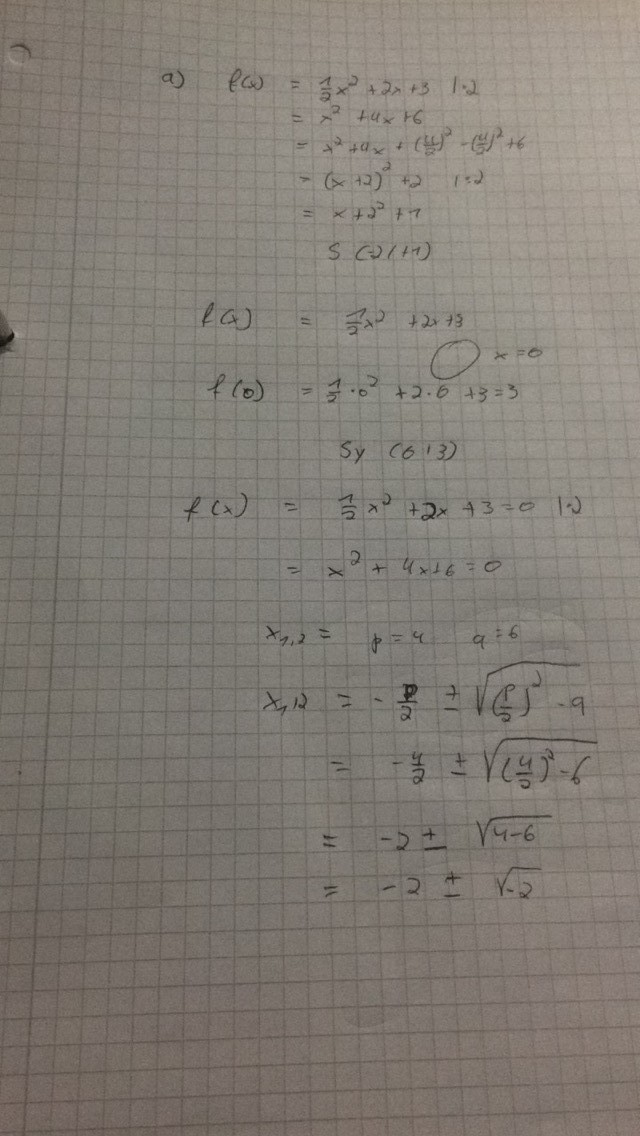 a) f(x) = 1/2 x² + 2x + 3 |·2
= x² + 4x + 6
= x² + 4x + (4/2)² - (4/2)² + 6
= (x + 2)² + 2 |:2
= x + 2² + 1
S (-2 | +1)
f(x) = 1/2 x² + 2x + 3
x = 0
f(0) = 1/2 · 0² + 2 · 0 + 3 = 3
Sy (0 | 3)
f(x) = 1/2 x² + 2x + 3 = 0 |·2
= x² + 4x + 6 = 0
x1,2 = p = 4 q = 6
x1,2 = - p/2 ± √((p/2)² - q)
= - 4/2 ± √((4/2)² - 6)
= -2 ± √(4-6)
= -2 ± √-2